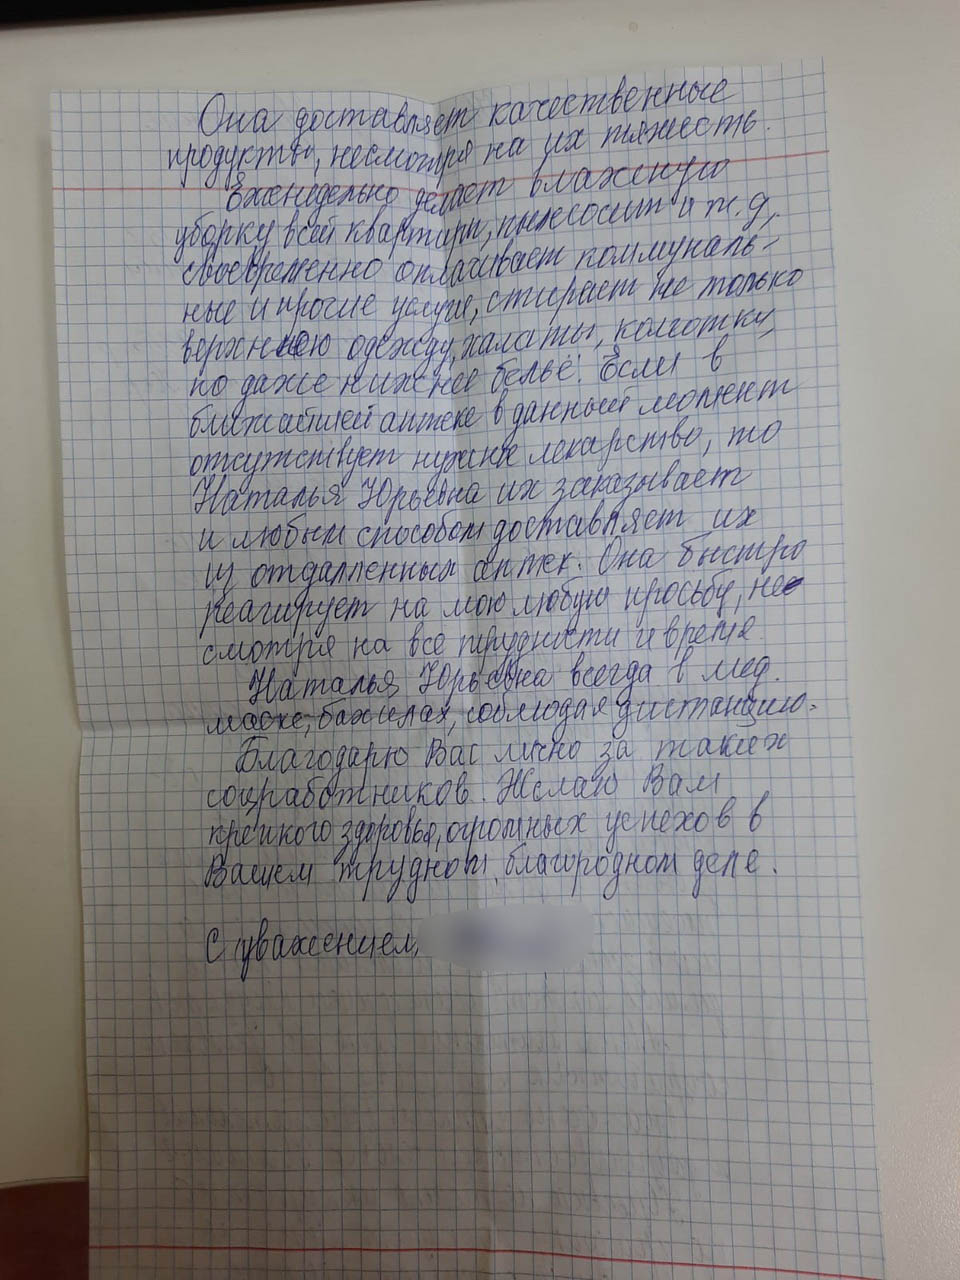 Она доставляет качественные
продукты, несмотря на их тяжесть.
Еженедельно делает влажную
уборку всей квартиры, пылесосит и т.д,
своевременно оплачивает коммуналь-
ные и прочие услуги, стирает не только
верхнюю одежду, халаты, колготки,
но даже нижнее бельё. Если в
ближайшей аптеке в данный момент
отсутствует нужные лекарство, то
Наталья Юрьевна их заказывает
и любым способом доставляет их
из отдаленных аптек. Она быстро
реагирует на мою любую просьбу, не
смотря на все трудности и время.
Наталья Юрьевна всегда в мед.
маске, бахилах, соблюдая дистанцию.
Благодарю Вас лично за таких
соцработников. Желаю Вам
крепкого здоровья, огромных успехов в
Вашем трудном, благородном деле.
С уважением,